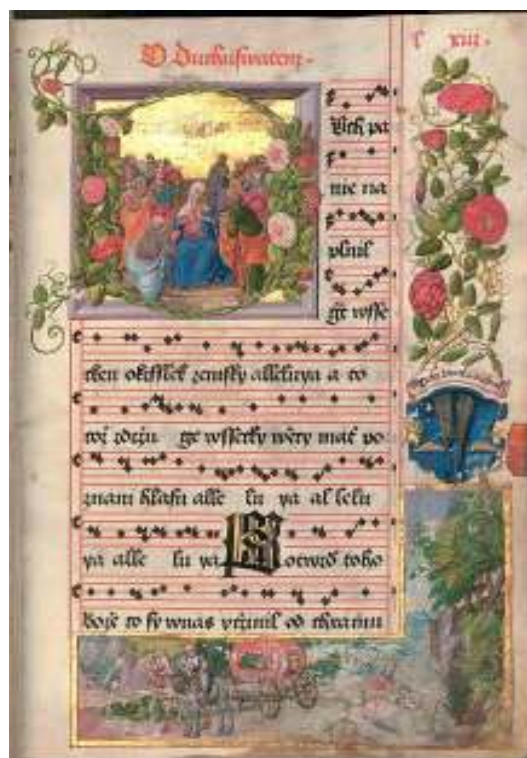 O Duchuswatem.
XIII.
Duch pa
nie na
plnil
wsse
tken okrsslek zemsky alleluya a to
ge wssecky mat po
znani hlasu alle lu ya al lelu
ya alle lu ya Potwrd toho
boze to sy wnas vczinil od chramu